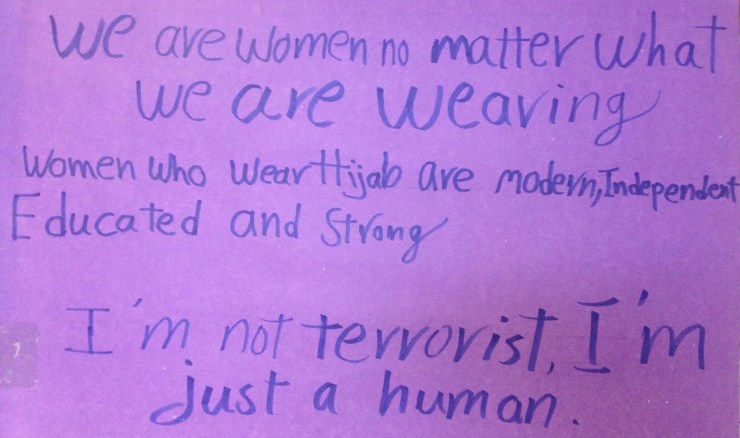 We are Women no matter what
we are wearing
Women who wear Hijab are modern, Independent
Educated and Strong
I'm not terrorist, I'm
just a human.
7